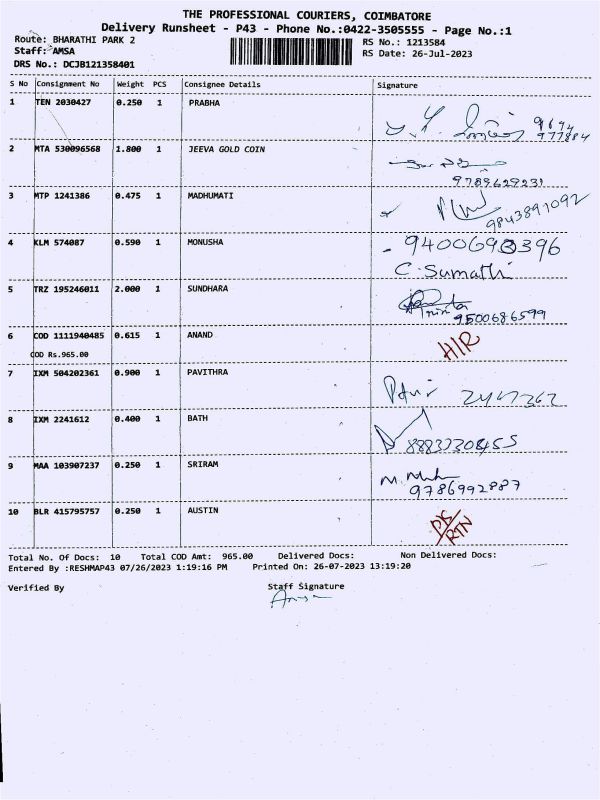 THE PROFESSIONAL COURIERS, COIMBATORE
Delivery Runsheet - P43 - Phone No.:0422-3505555 - Page No.:1
Route: BHARATHI PARK 2
RS No.: 1213584
Staff: AMSA
RS Date: 26-Jul-2023
DRS No.: DCJB121358401
S No Consignment No Weight PCS Consignee Details Signature
1 TEN 2030427 0.250 1 PRABHA
2 MTA 530096568 1.800 1 JEEVA GOLD COIN
9789629231
3 MTP 1241386 0.475 1 MADHUMATI
9843891092
4 KLM 574087 0.590 1 MONUSHA
9400693396
C. Sumathi
5 TRZ 195246011 2.000 1 SUNDHARA
9500686599
6 COD 1111940485 0.615 1 ANAND H/R
COD Rs.965.00
7 IXM 504202361 0.900 1 PAVITHRA
8 IXM 2241612 0.400 1 BATH
9 MAA 103907237 0.250 1 SRIRAM
9786992887
10 BLR 415795757 0.250 1 AUSTIN
RTN
Total No. Of Docs: 10 Total COD Amt: 965.00 Delivered Docs: Non Delivered Docs:
Entered By :RESHMAP43 07/26/2023 1:19:16 PM Printed On: 26-07-2023 13:19:20
Verified By Staff Signature